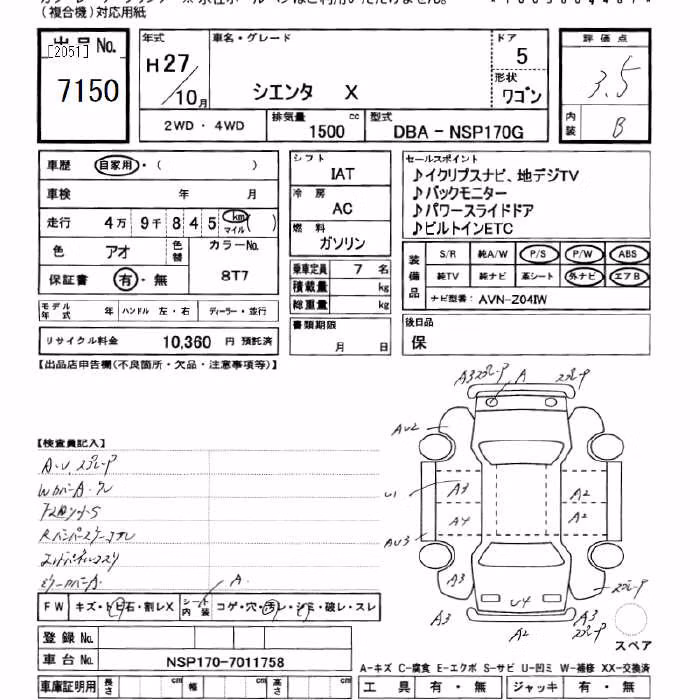 (複合機)対応用紙
出品No.
[2051]
7150
年式
H27/10月
車名・グレード
シエンタ X
ドア
5
形状
ワゴン
評価点
3.5
内装
B
2WD・4WD
排気量
1500 cc
型式
DBA - NSP170G
車歴 自家用・( )
車検 年 月
走行 4万 9千 8 4 5 km マイル ( )
色 アオ 色替 カラーNo. 8T7
保証書 有・無
モデル年式 年 ハンドル 左・右 ディーラー・並行
リサイクル料金 10,360 円 預託済
シフト
IAT
冷房
AC
燃料
ガソリン
乗車定員 7 名
積載量 kg
総重量 kg
書類期限
月 日
セールスポイント
♪イクリプスナビ、地デジTV
♪バックモニター
♪パワースライドドア
♪ビルトインETC
装備品
S/R 純A/W P/S P/W ABS
純TV 純ナビ 革シート 外ナビ エアB
ナビ型番: AVN-Z04IW
後日品
保
【出品店申告欄(不良箇所・欠品・注意事項等)】
【検査員記入】
A・U、スプレーP
FW キズ・トビ石・割レX シート内装 コゲ・穴・汚レ・シミ・破レ・スレ
A
登録No.
車台No. NSP170-7011758
車庫証明用 長さ cm 幅 cm 高さ cm
A3 A
AU2
U1 A3 A2
AU3 A4 A2
A3
A3 U4 A3
A2
スペア
A-キズ C-腐食 E-エクボ S-サビ U-凹ミ W-補修 XX-交換済
工具 有・無 ジャッキ 有・無